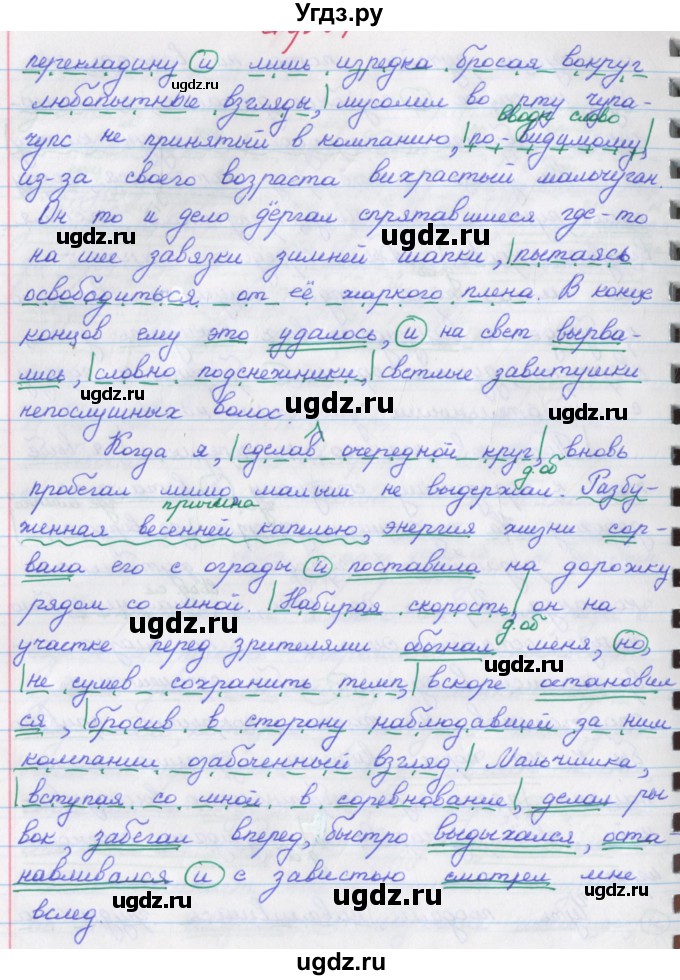 Угдз.ру
перекладину и лишь изредка бросая вокруг
любопытные взгляды, мусолил во рту чупа-
вводн слово
чупс не принятый в компанию, по-видимому,
из-за своего возраста вихрастый мальчуган.
Он то и дело дёргал спрятавшиеся где-то
ugdz.ru ugdz.ru
на шее завязки зимней шапки, пытаясь
освободиться от её жаркого плена. В конце
концов ему это удалось, и на свет вырва-
лись, словно подснежники, светлые завитушки
ugdz.ru
непослушных волос.
ugdz.ru
Когда я, сделав очередной круг, вновь
д.об
пробегал мимо малыш не выдержал. Разбу-
причина
женная весенней капелью, энергия жизни сор-
вала его с ограды и поставила на дорожку
рядом со мной. Набирая скорость, он на
ugdz.ru
д.об
участке перед зрителями обогнал меня, но,
ugdz.ru
не сумев сохранить темп, вскоре остановил
ся, бросив в сторону наблюдавшей за ним
компании озабоченный взгляд. Мальчишка,
вступая со мной в соревнование, делал ры
вок, забегал вперед, быстро выдыхался, оста-
навливался и с завистью смотрел мне
ugdz.ru ugdz.ru ugdz.ru
вслед.
ugdz.ru